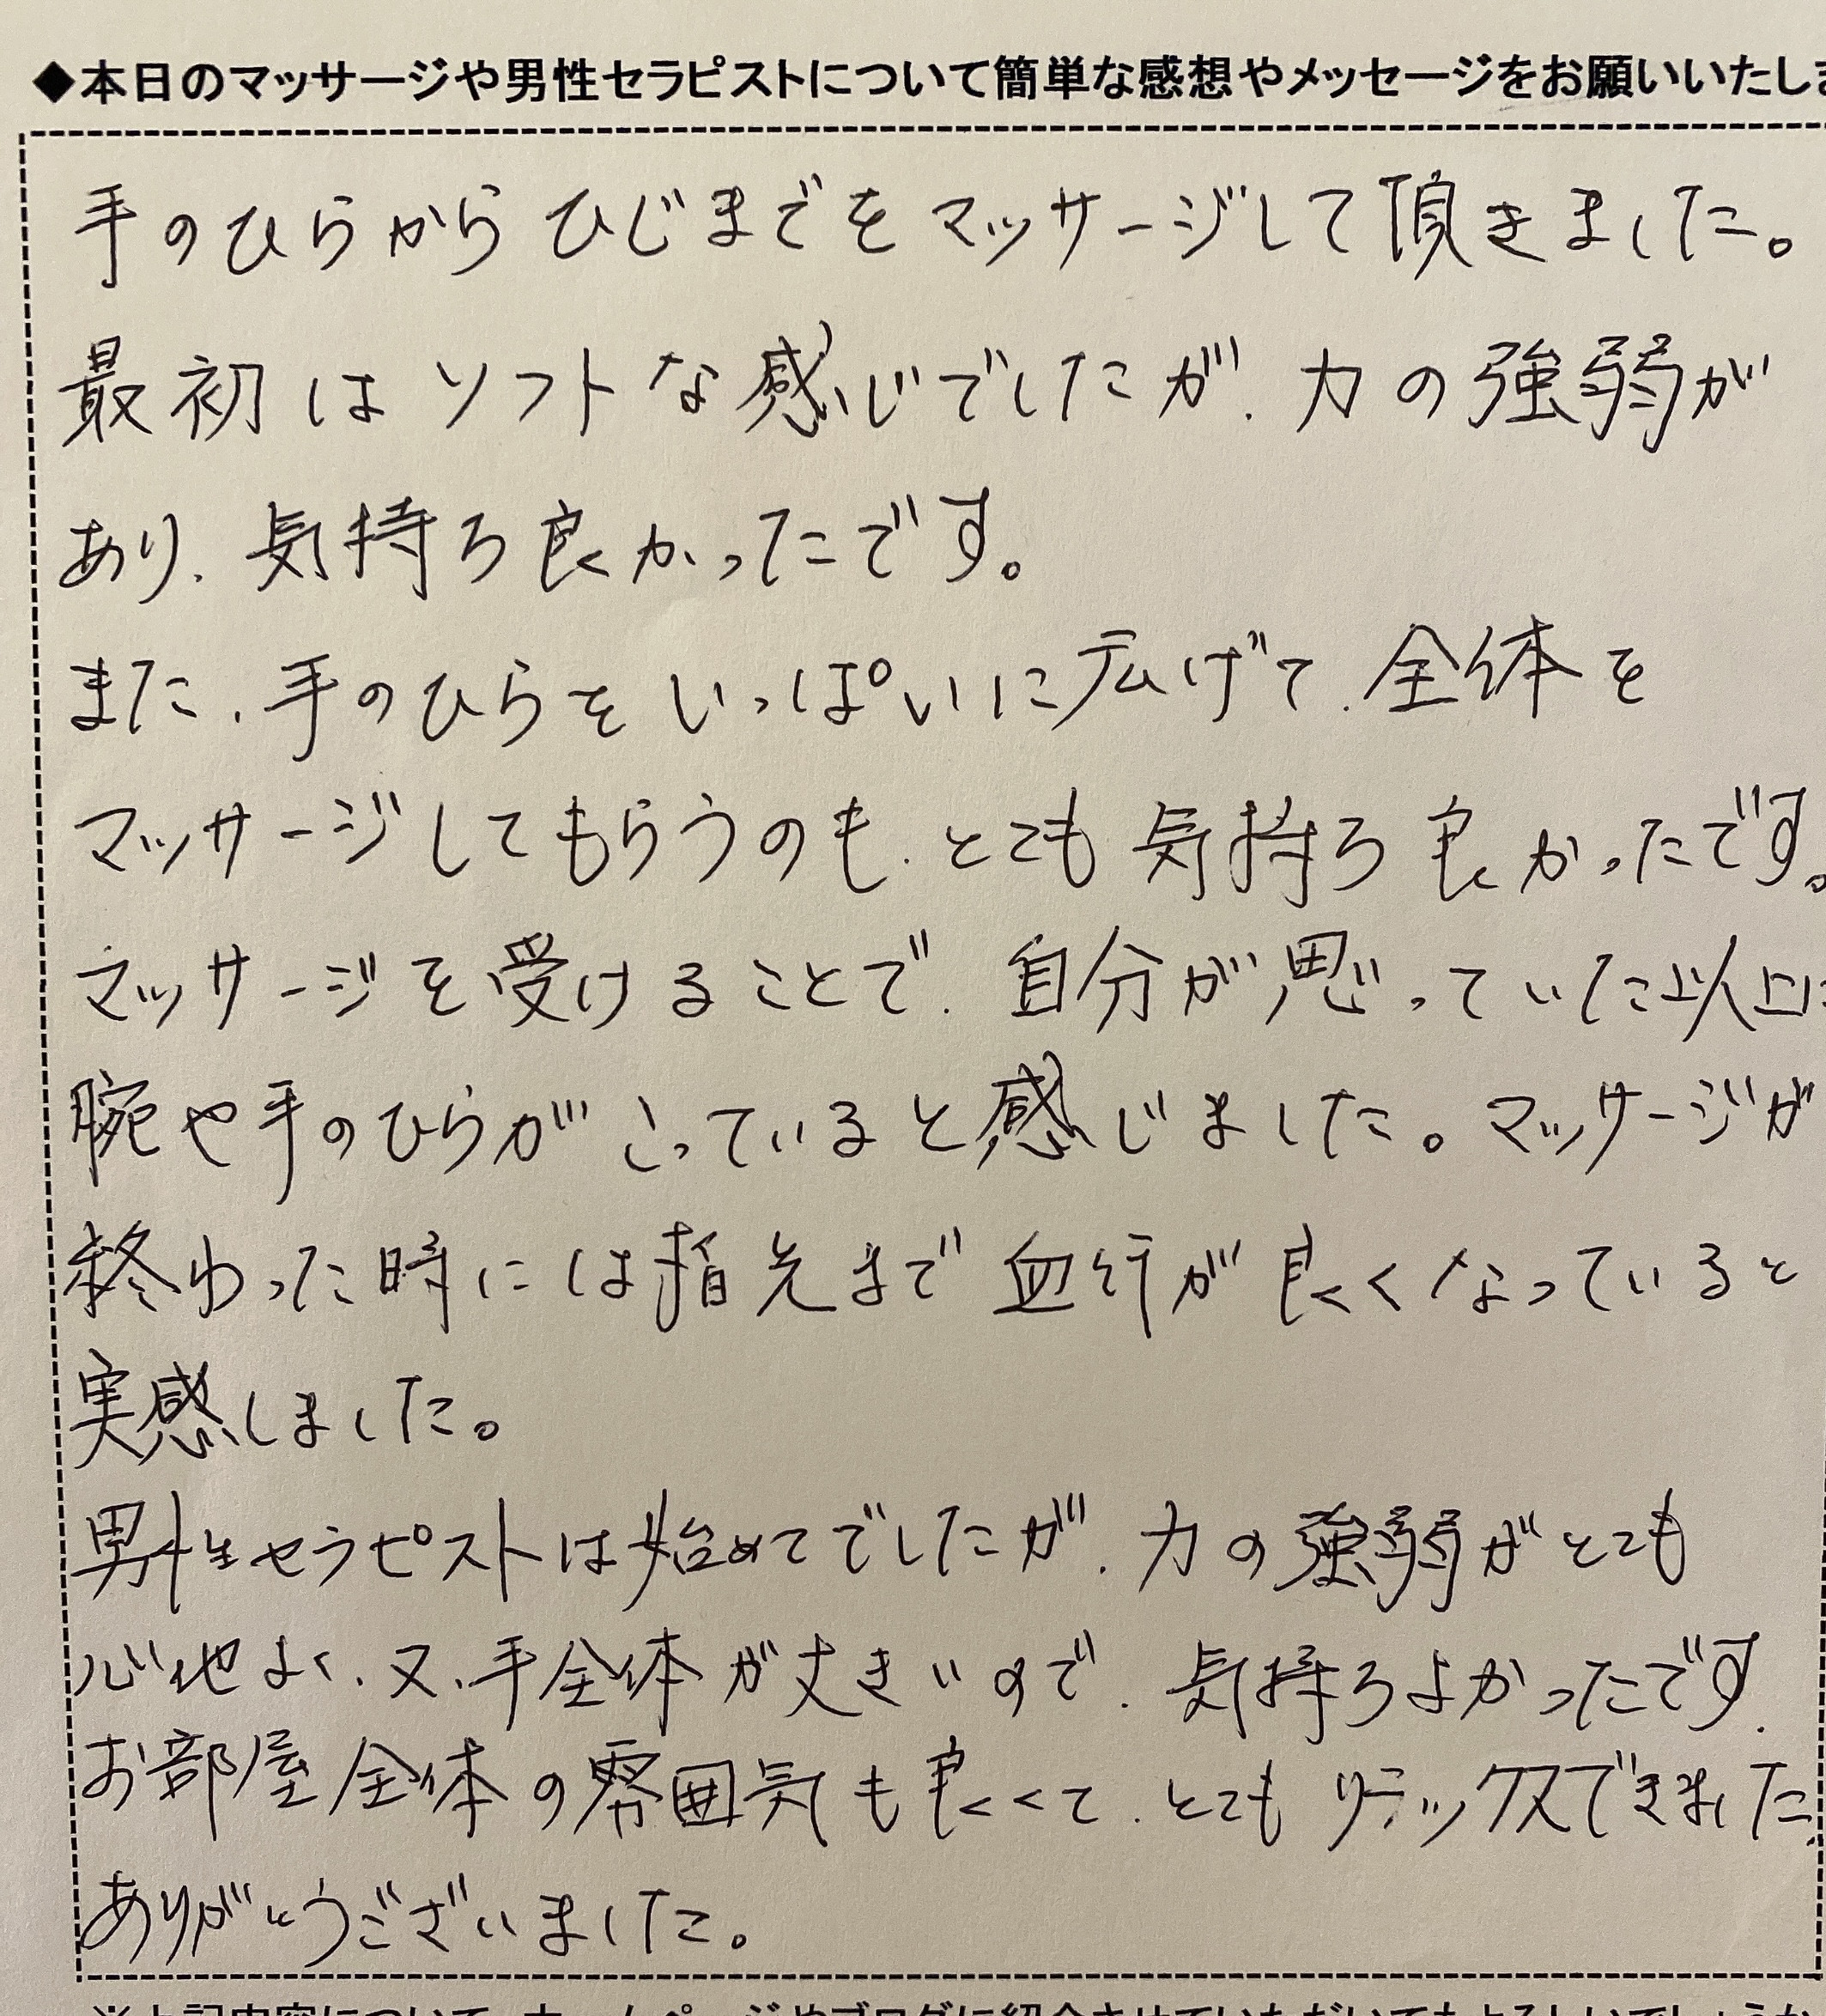 ◆本日のマッサージや男性セラピストについて簡単な感想やメッセージをお願いいたしま
手のひらからひじまでをマッサージして頂きました。
最初はソフトな感じでしたが、力の強弱が
あり、気持ち良かったです。
また、手のひらをいっぱいに広げて、全体を
マッサージしてもらうのも、とても気持ち良かったです。
マッサージを受けることで、自分が思っていた以上に
腕や手のひらがこっていると感じました。マッサージが
終わった時には指先まで血行が良くなっていると
実感しました。
男性セラピストは始めてでしたが、力の強弱がとても
心地よく、又、手全体が大きいので、気持ちよかったです。
お部屋全体の雰囲気も良くて、とてもリラックスできました。
ありがとうございました。